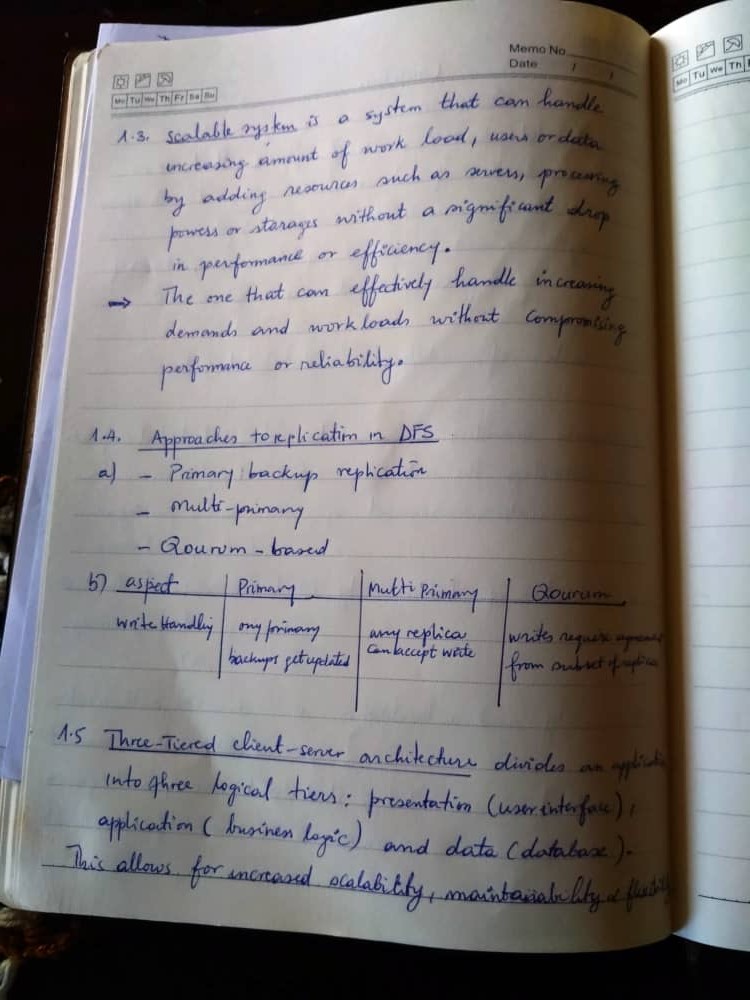 Memo No
Date / /
Mo Tu We Th Fr Sa Su
Mo Tu We Th
1.3. scalable system is a system that can handle
increasing amount of work load, users or data
by adding resources such as servers, processing
powers or storages without a significant drop
in performance or efficiency.
⇒ The one that can effectively handle increasing
demands and workloads without compromising
performance or reliability.
1.4. Approaches to replication in DFS
a) - Primary backup replication
- Multi-primary
- Qourum - based
b) aspect | Primary | Multi Primary | Qourum
write Handling | ony primary | any replica | writes require
backups get updated | can accept write | from subset of
1.5 Three-Tiered client-server architecture divides an
into three logical tiers: presentation (user interface),
application (business logic) and data (database).
This allows for increased scalability, &